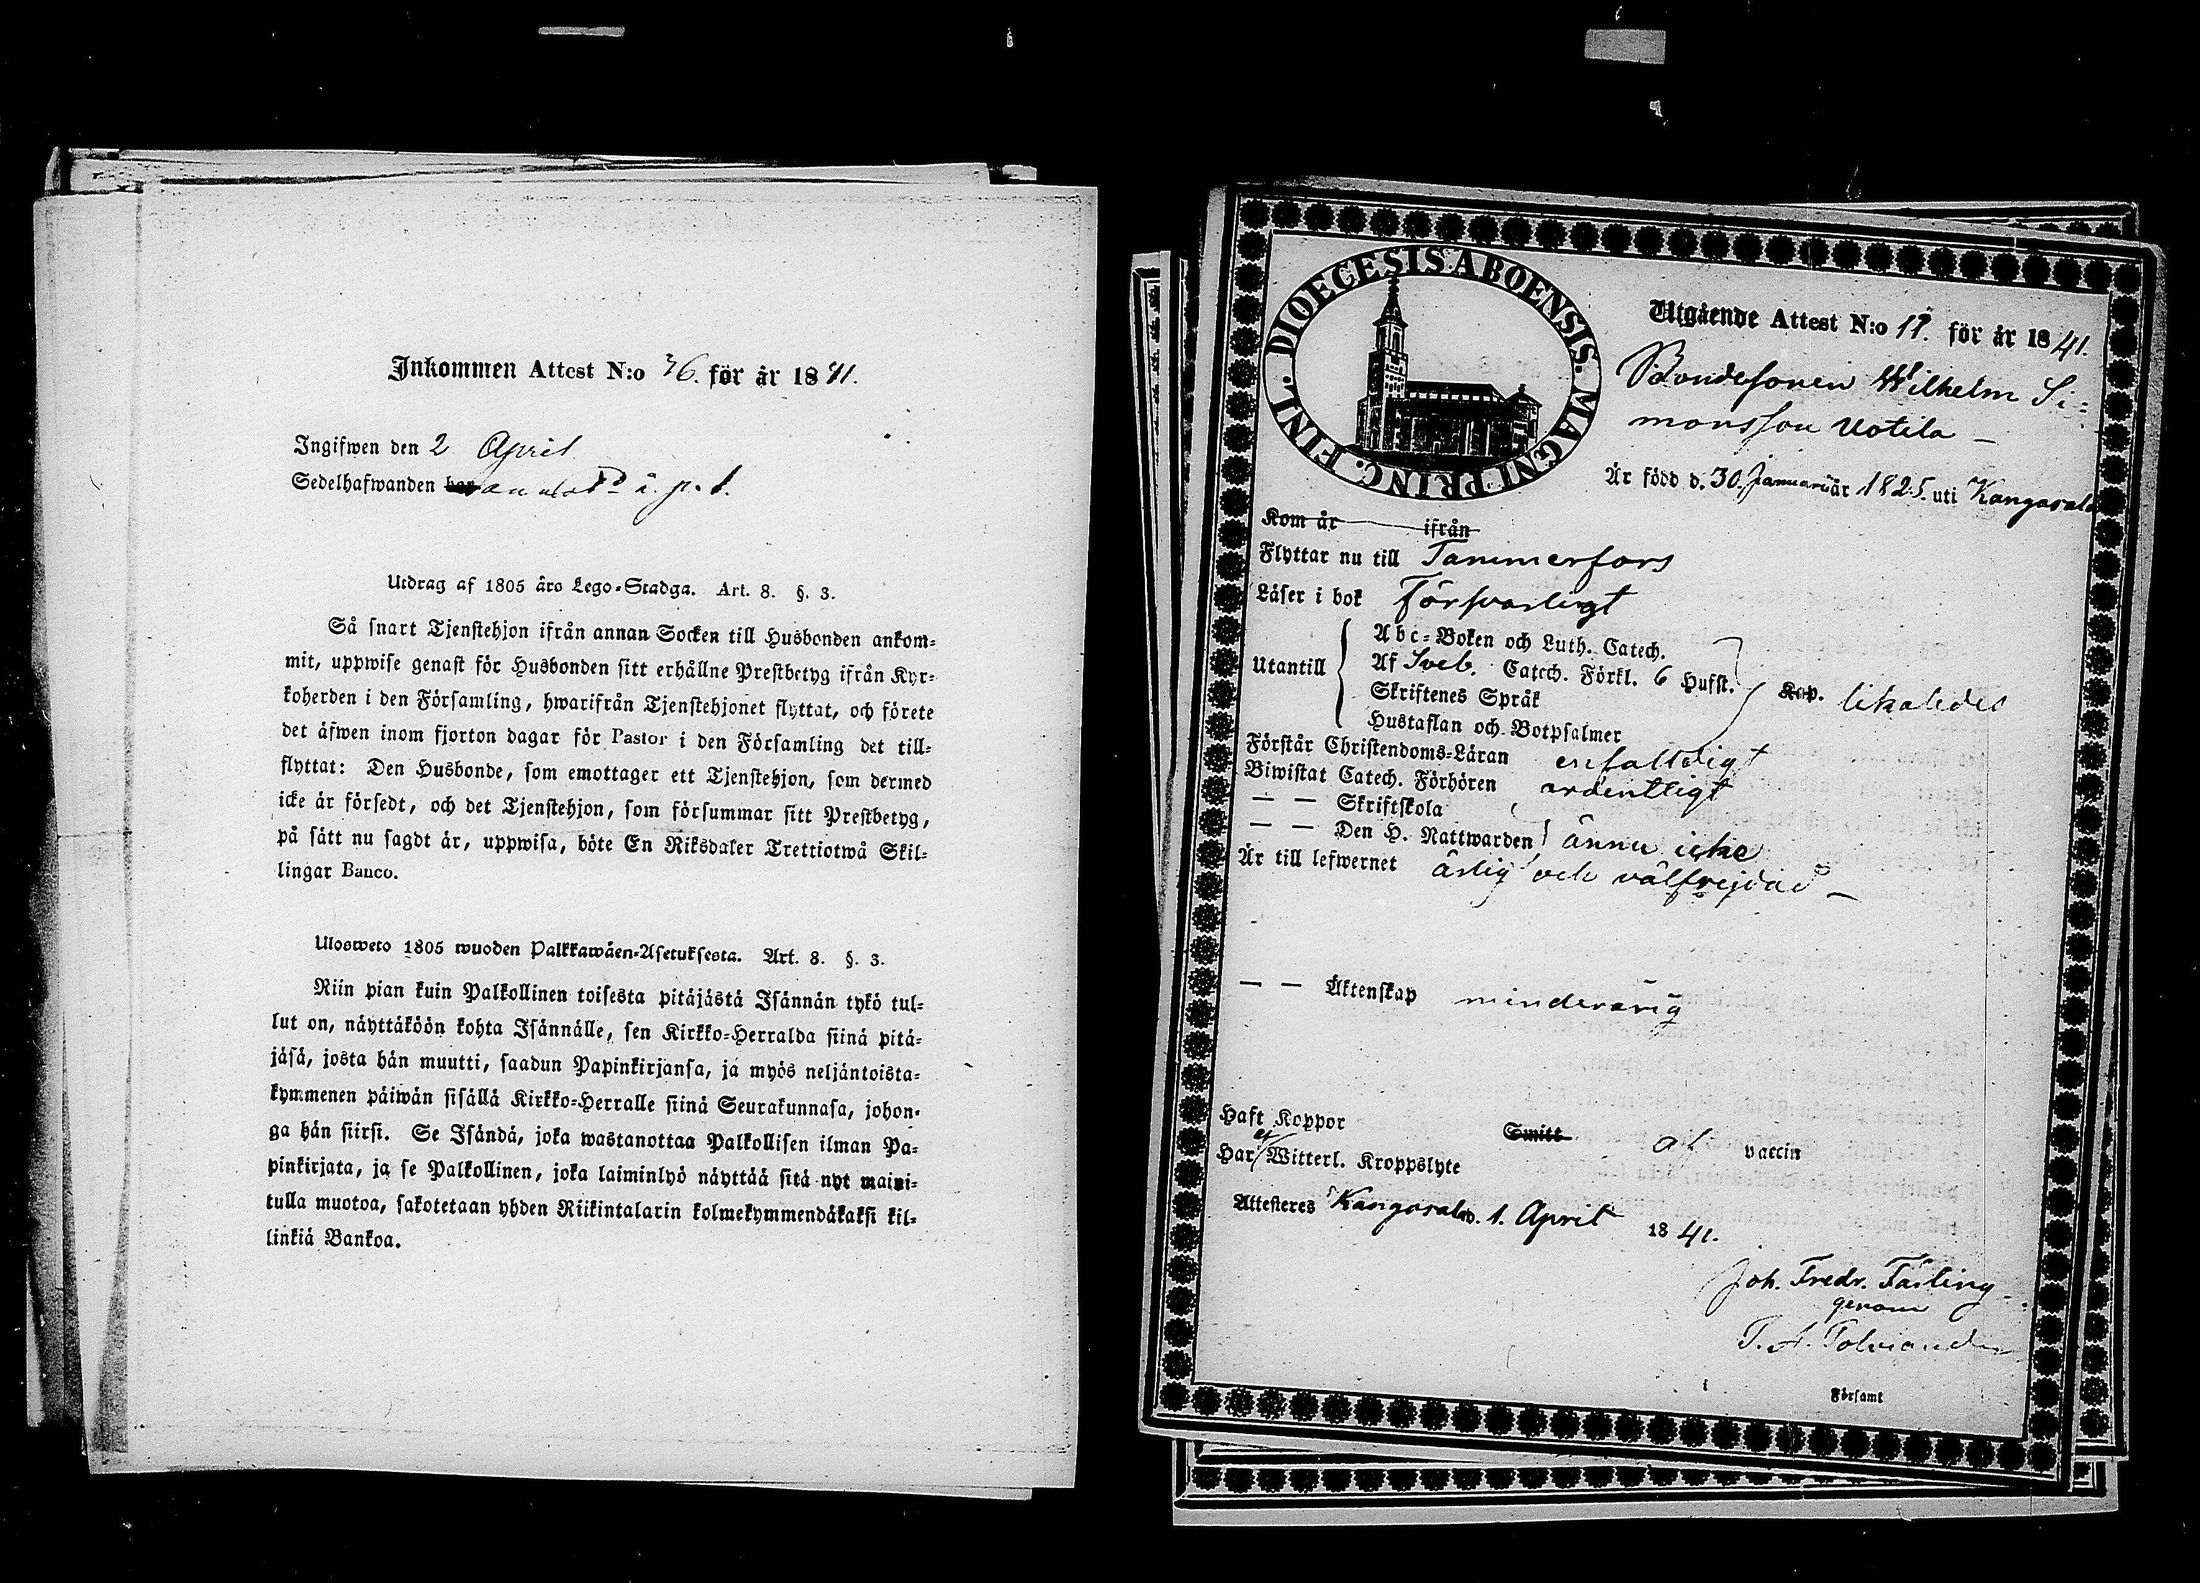 Inkommen Attest N:o 36. för år 1841.
Ingifwen den 2 April
Sedelhafwanden har
Utdrag af 1805 års Lego-Stadga. Art. 8. §. 3.
Så snart Tjenstehjon ifrån annan Socken till Husbonden ankom-
mit, uppwise genast för Husbonden sitt erhållne Prestbetyg ifrån Kyr-
koherden i den Församling, hwarifrån Tjenstehjonet flyttat, och förete
det äfwen inom fjorton dagar för Pastor i den Församling det till-
flyttat: Den Husbonde, som emottager ett Tjenstehjon, som dermed
icke är försedt, och det Tjenstehjon, som försummar sitt Prestbetyg,
på sätt nu sagdt är, uppwisa, böte En Riksdaler Trettiotwå Skil-
lingar Banco.
Uloswero 1805 wuoden Palkkawäen-Asetuksesta. Art. 8. §. 3.
Niin pian kuin Palkollinen toisesta pitäjästä Isännän tykö tul-
lut on, näyttäköön kohta Isännälle, sen Kirkko-Herralda siinä pitä-
jäsä, josta hän muutti, saadun Papinkirjansa, ja myös neljäntoista-
kymmenen päiwän sisällä Kirkko-Herralle siinä Seurakunnasa, johon-
ga hän siirsi. Se Isändä, joka wastanottaa Palkollisen ilman Pa-
pinkirjata, ja se Palkollinen, joka laiminlyö näyttää sitä nyt maini-
tulla muotoa, sakotetaan yhden Riikintalarin kolmekymmendäkaksi kil-
linkiä Bankoa.
DIOECESIS ABOENSIS. MAGNI PRINC. FINL.
Utgående Attest N:o 17. för år 1841.
Bondesonen Wilhelm Si-
monsson Uotila –
Är född d. 30. Januari år 1825. uti Kangasala
Kom år ifrån
Flyttar nu till Tammerfors
Läser i bok Försvarligt
Utantill
Abc-Boken och Luth. Catech.
Af Sveb. Catech. Förkl. 6 Hufst.
Skriftenes Språk
Hustaflan och Botpsalmer
Kap. likaledes
Förstår Christendoms-Läran enfaldigt
Biwistat Catech. Förhören ordentligt
— — Skriftskola
— — Den H. Nattwarden ännu icke
Är till lefwernet ärlig och välfrejdad –
— — Äktenskap minderårig
Haft Koppor Smitt af vaccin
Har ej Witterl. Kroppslyte
Attesteres Kangasala d. 1. April 1841.
Joh. Fredr. Färling
genom
T. A. Polviander
Församt